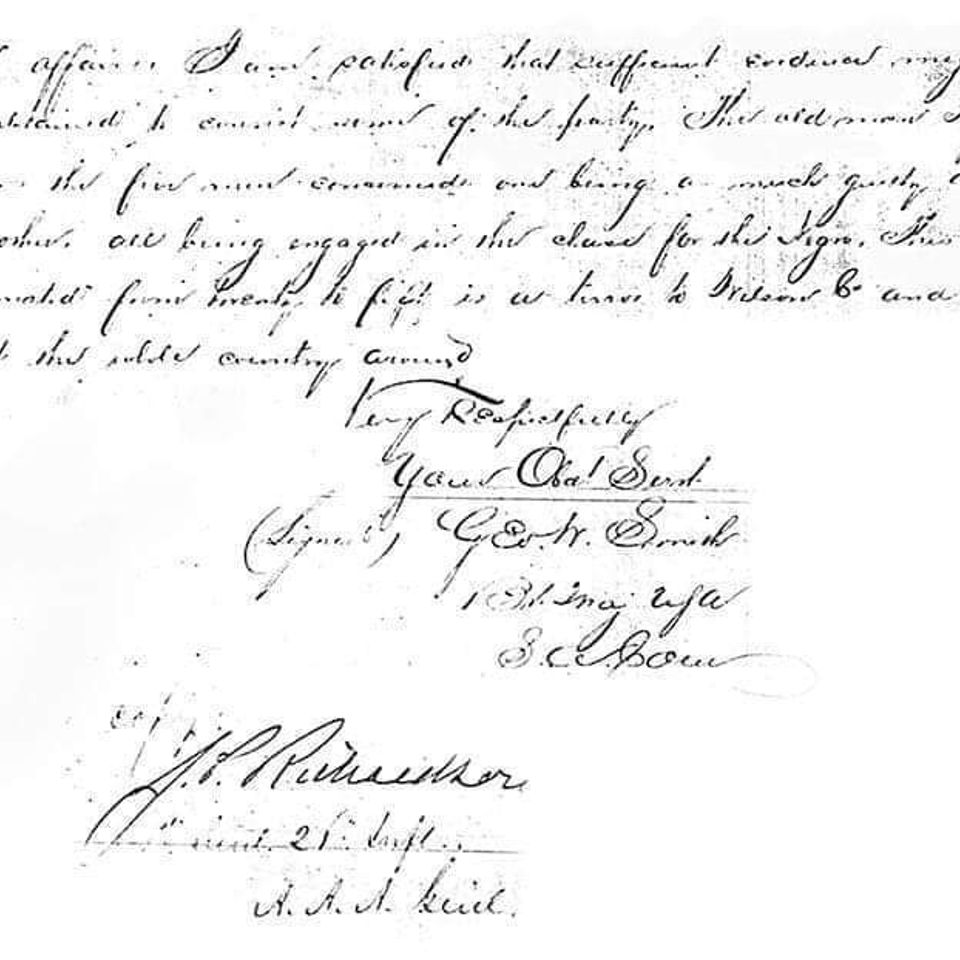 affairs I am satisfied that sufficient evidence may
to convict some of the party. The old man
the five men concerned one being as much guilty
other. all being engaged in the chase for the Negro. This
from twenty to fifty is a terror to Wilson Co and
the whole country around
Very Respectfully
Your Obdt Servt
(Signed) Geo. W. Smith
Bt. Maj USA
S. A. Com
copy
J. P. Richardson
21st Inft.
A. A. A. Genl.